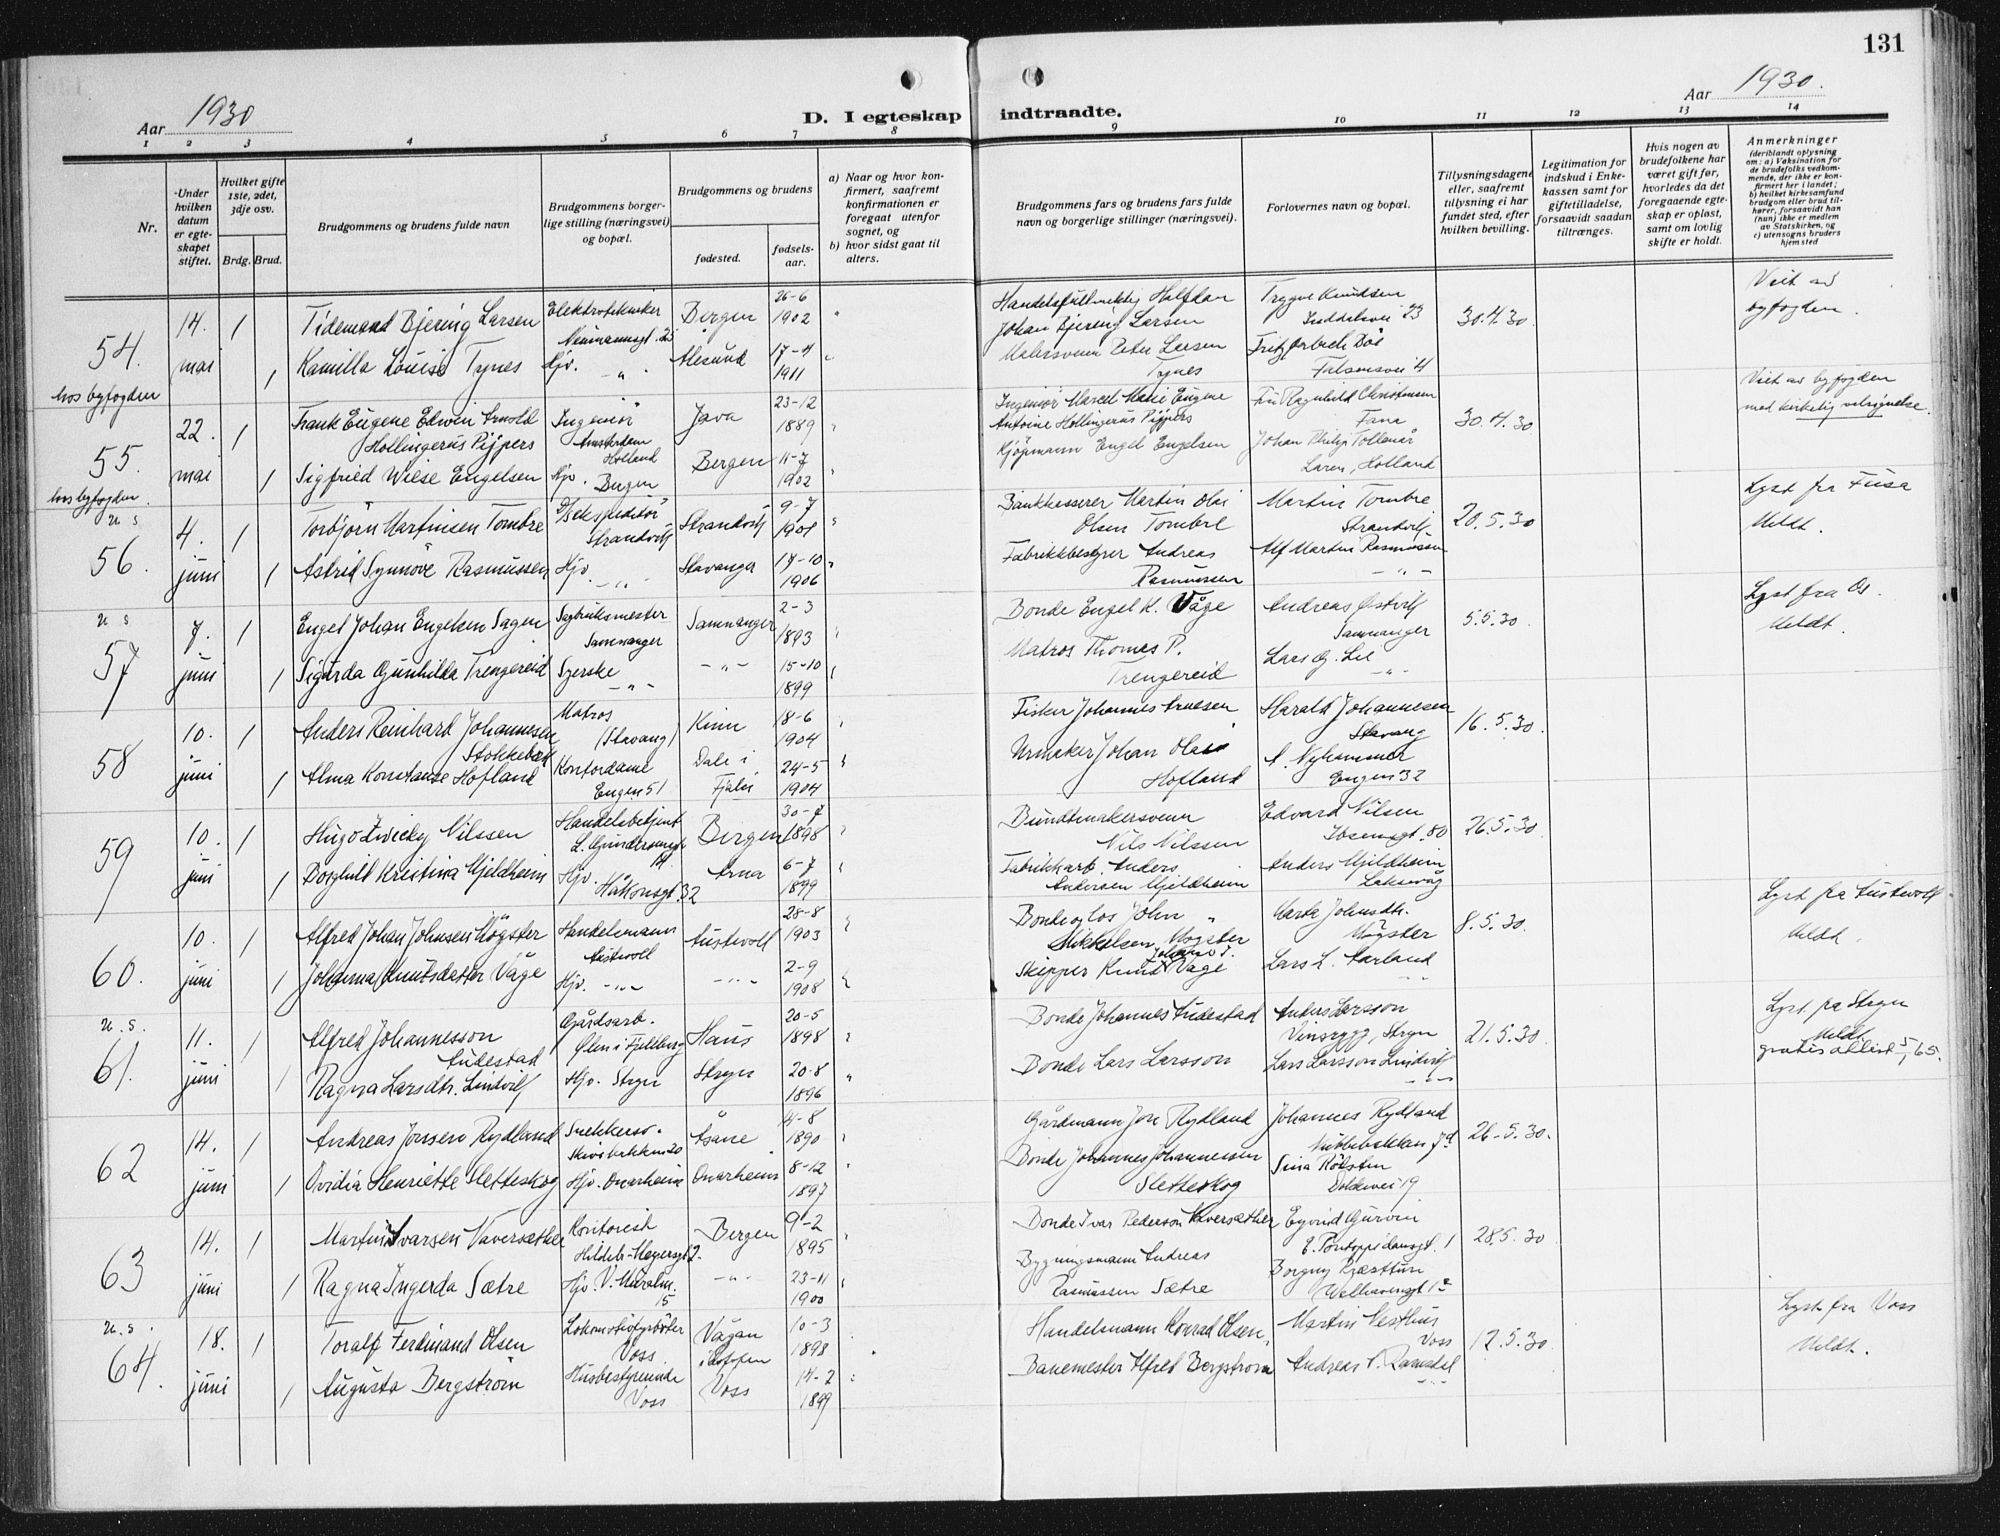 131
Aar 1930
D. I egteskap indtraadte.
Aar 1930.
1 2 3 4 5 6 7 8 9 10 11 12 13 14
Nr.
Under hvilken datum er egteskapet stiftet.
Hvilket gifte 1ste, 2det, 3dje osv.
Brdg. Brud.
Brudgommens og brudens fulde navn
Brudgommens borgerlige stilling (næringsvei) og bopæl.
Brudgommens og brudens
fødested.
fødselsaar.
a) Naar og hvor konfirmert, saafremt konfirmationen er foregaat utenfor sognet, og
b) hvor sidst gaat til alters.
Brudgommens fars og brudens fars fulde navn og borgerlige stillinger (næringsvei).
Forlovernes navn og bopæl.
Tillysningsdagene eller, saafremt tillysning ei har fundet sted, efter hvilken bevilling.
Legitimation for indskud i Enkekassen samt for giftetilladelse, forsaavidt saadan tiltrænges.
Hvis nogen av brudefolkene har været gift før, hvorledes da det foregaaende egteskap er opløst, samt om lovlig skifte er holdt.
Anmerkninger
(deriblandt oplysning om: a) Vaksination for de brudefolks vedkommende, der ikke er konfirmert her i landet; b) hvilket kirkesamfund brudgom eller brud tilhører, forsaavidt han (hun) ikke er medlem av Statskirken, og c) utensogns bruders hjemsted
54. hos byfogden
14. mai 1 Tidemand Bjering Larsen Elektrotekniker Neumannsgt. 25 Bergen 26-6 1902 Handelsfullmektig Halfdan Johan Bjering Larsen Trygve Knudsen 23 30.4.30 Viet av byfogden.
1 Kamilla Louise Tynes Hjv. „ Ålesund 17-4 1911 Malersvenn Peter Larsen Tynes Fritz Døl Falsensvei 4
55. hos byfogden.
22. mai 1 Frank Eugene Edwin Arnold Hollingerus Pijpers Ingeniør Amsterdam Holland Java 23-12 1889 Ingeniør Marcel Marie Eugene Antoine Hollingerus Pijpers Fru Ragnhild Christensen Fana 30.4.30 Viet av byfogden med kirkelig velsignelse.
1 Sigfried Wiese Engelsen Hjv. Bergen Bergen 11-7 1902 Kjøpmann Engel Engelsen Johan Philip Tollenår Laren, Holland
u s
56.
4. juni 1 Torbjørn Martinsen Tombre Ekspeditør Strandvik Strandvik 9-7 1901 Bankkasserer Martin Olai Olsen Tombre Martin Tombre Strandvik 20.5.30 Lyst fra Fusa Meldt.
1 Astrid Synnøve Rasmussen Hjv. „ Stavanger 17-10 1906 Fabrikkbestyrer Andreas Rasmussen Alf Martin Rasmussen „
u s
57
7. juni 1 Engel Johan Engelsen Sagen Sagbruksmester Samnanger Samnanger 2-3 1893 Bonde Engel K. Våge Andreas Østvik Samnanger 5.5.30. Lyst fra Os. Meldt.
1 Sigurda Gunhilda Trengereid Syerske „ „ 15-10 1899 Matros Thomas P. Trengereid Lars O. Lie „
58
10. juni 1 Anders Reinhard Johannesen Stokkebøk Matros (Stavang) Kinn 18-6 1904 Fisker Johannes Arnesen Harald Johannesen Stavang 16.5.30.
1 Alma Konstanse Hofland Kontordame Engen 51 Dale i Fjaler 24-5 1904 Urmaker Johan Olai Hofland A. Nyhammer Engen 32
59
10. juni 1 Hugo Zwicky Nilssen Handelsbetjent Bergen 30-7 1898 Bundtmakersvenn Nils Nilssen Edvard Nilsen Ibsensgt. 80 26.5.30.
1 Borghild Kristina Mjeldheim Hjv. Håkonsgt. 32 Arna 6-7 1899 Fabrikkarb. Anders Andersen Mjeldheim Anders Mjeldheim Laksevåg
60.
10. juni 1 Alfred Johan Johnsen Møgster Handelsmann Austevoll Austevoll 28-8 1903 Bonde og los John Mikkelsen Møgster Marta Johnsdtr. Møgster 8.5.30. Lyst fra Austevoll Meldt.
1 Johanna Knutsdatter Våge Hjv. „ „ 2-9 1908 Skipper Knut Våge Lars L. Aarland
u. s.
61.
11. juni 1 Alfred Johannesson Audestad Gårdsarb. Ølen i Fjellberg Haus 20-5 1898 Bonde Johannes Audestad Anders Larsson Vinsrygg, Stryn 21.5.30. Lyst fra Stryn Meldt gratis attest 5/65.
1 Ragna Larsdtr. Lindvik Hjv. Stryn Stryn 20-8 1896 Bonde Lars Larsson Lars Larsson Lindvik „
62
14. juni 1 Andreas Jonsen Rydland Snekkersv. Skivebakken 20 Åsane 4-8 1890 Gårdmann Jon Rydland Johannes Rydland Nubbebakken 7d 26.5.30.
1 Ovidia Henriette Sletteskog Hjv. Onarheim Onarheim 8-12 1897 Bonde Johannes Johannesen Sletteskog Sina
63
14. juni 1 Martin Ivarsen Vaversæther Kontorist Bergen 9-2 1895 Bonde Ivar Pederson Vaversæther Eyvind Gurvin E. Pontoppidansgt. 1 28.5.30.
1 Ragna Ingerda Sætre Hjv. V. Muralm. 15 „ 23-11 1900 Bygningsmann Andreas Rasmussen Sætre Borgny Welhavensgt 1a
u. s.
64.
18. juni 1 Toralf Ferdinand Olsen Lokomotivfyrbøter Voss Vågan i Lofoten 10-3 1898 Handelsmann Konrad Olsen Martin Nesthus Voss 17.5.30. Lyst fra Voss Meldt.
1 Augusta Bergstrøm Husbestyrerinde Voss Voss 14-2 1899 Banemester Alfred Bergstrøm Andreas